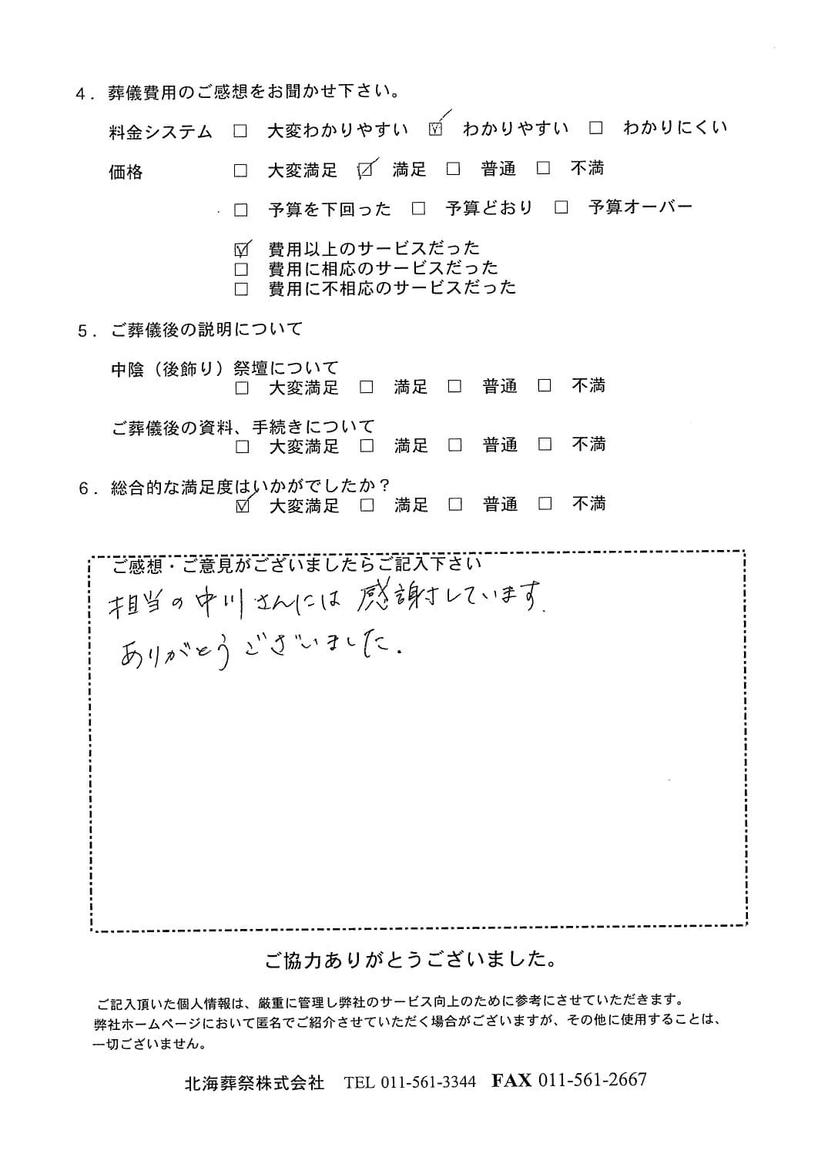 4．葬儀費用のご感想をお聞かせ下さい。
料金システム □ 大変わかりやすい ☑ わかりやすい □ わかりにくい
価格 □ 大変満足 ☑ 満足 □ 普通 □ 不満
□ 予算を下回った □ 予算どおり □ 予算オーバー
☑ 費用以上のサービスだった
□ 費用に相応のサービスだった
□ 費用に不相応のサービスだった
5．ご葬儀後の説明について
中陰（後飾り）祭壇について
□ 大変満足 □ 満足 □ 普通 □ 不満
ご葬儀後の資料、手続きについて
□ 大変満足 □ 満足 □ 普通 □ 不満
6．総合的な満足度はいかがでしたか？
☑ 大変満足 □ 満足 □ 普通 □ 不満
ご感想・ご意見がございましたらご記入下さい
相当の中川さんには感謝しています.
ありがとうございました.
ご協力ありがとうございました。
ご記入頂いた個人情報は、厳重に管理し弊社のサービス向上のために参考にさせていただきます。
弊社ホームページにおいて匿名でご紹介させていただく場合がございますが、その他に使用することは、
一切ございません。
北海葬祭株式会社 TEL 011-561-3344 FAX 011-561-2667